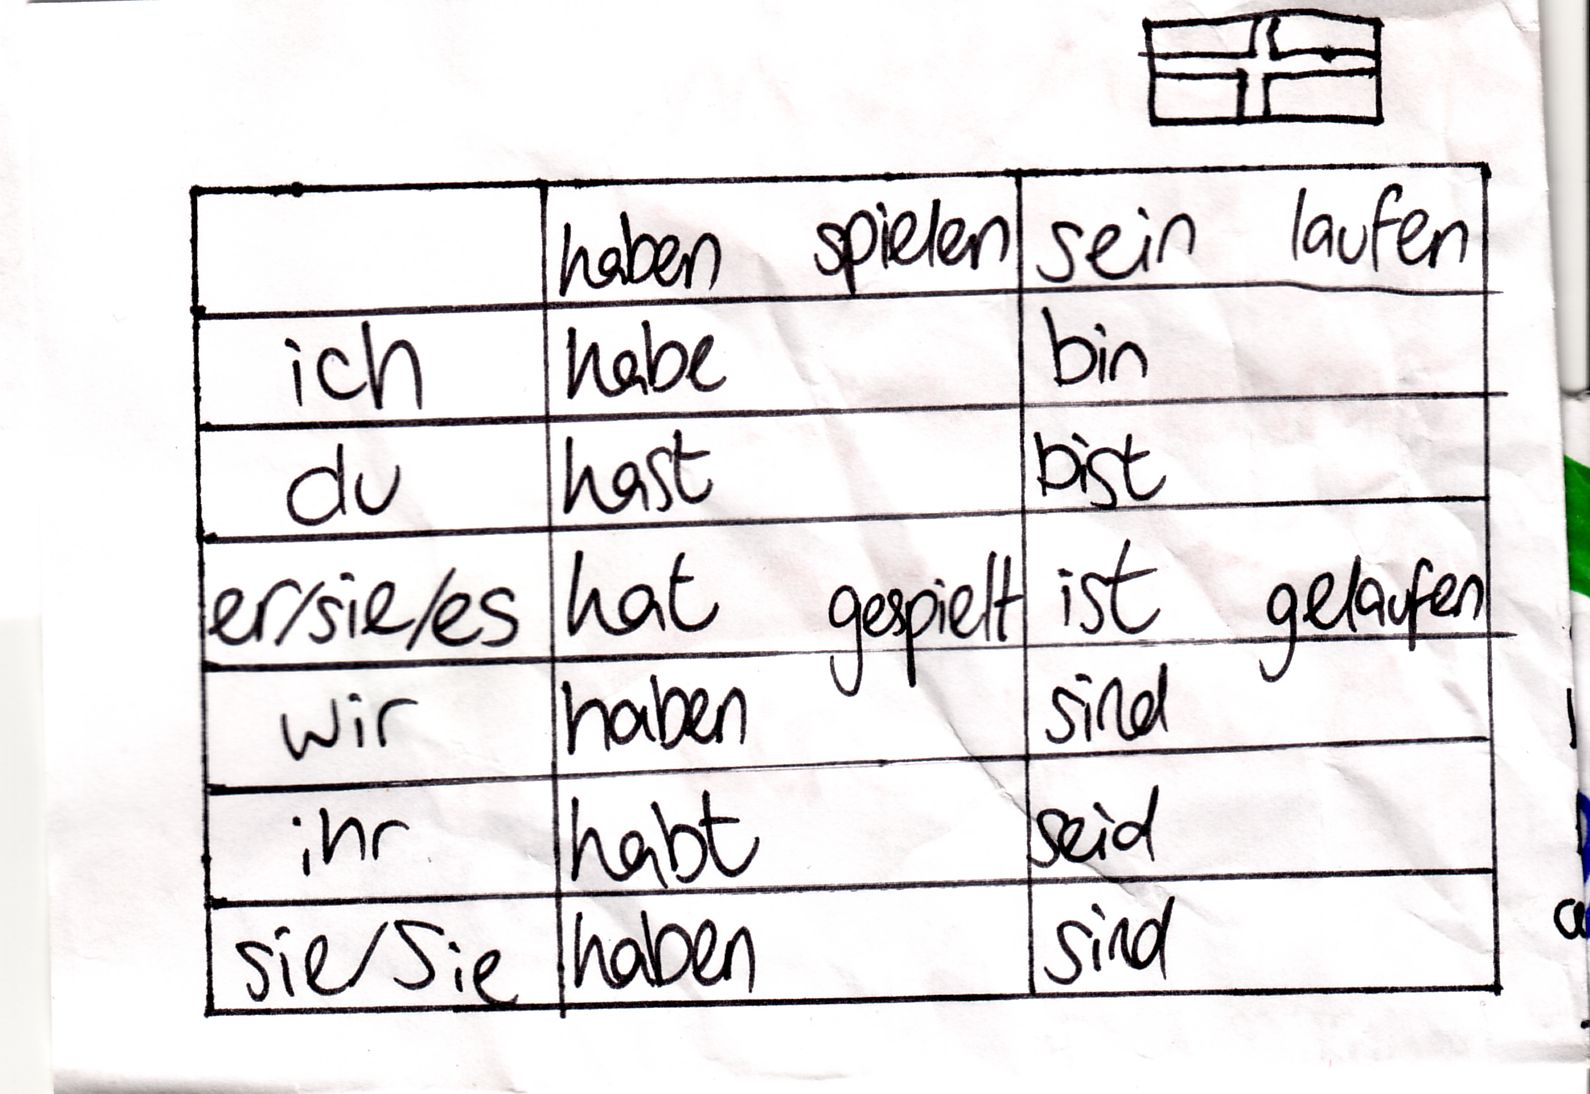 haben spielen sein laufen
ich habe bin
du hast bist
er/sie/es hat gespielt ist gelaufen
wir haben sind
ihr habt seid
sie/Sie haben sind